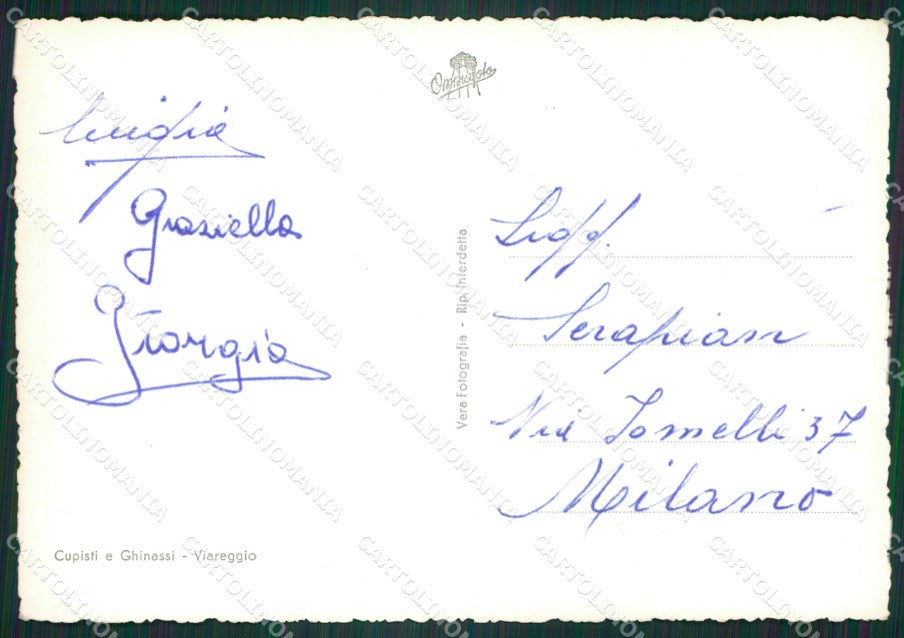 Luigia
Graziella
Giorgia
Cupisti e Ghinassi - Viareggio
Vera Fotografia - Rip. Interdetta
Spett.
Serapian
Via Jomelli 37
Milano
CARTOLINOMANIA